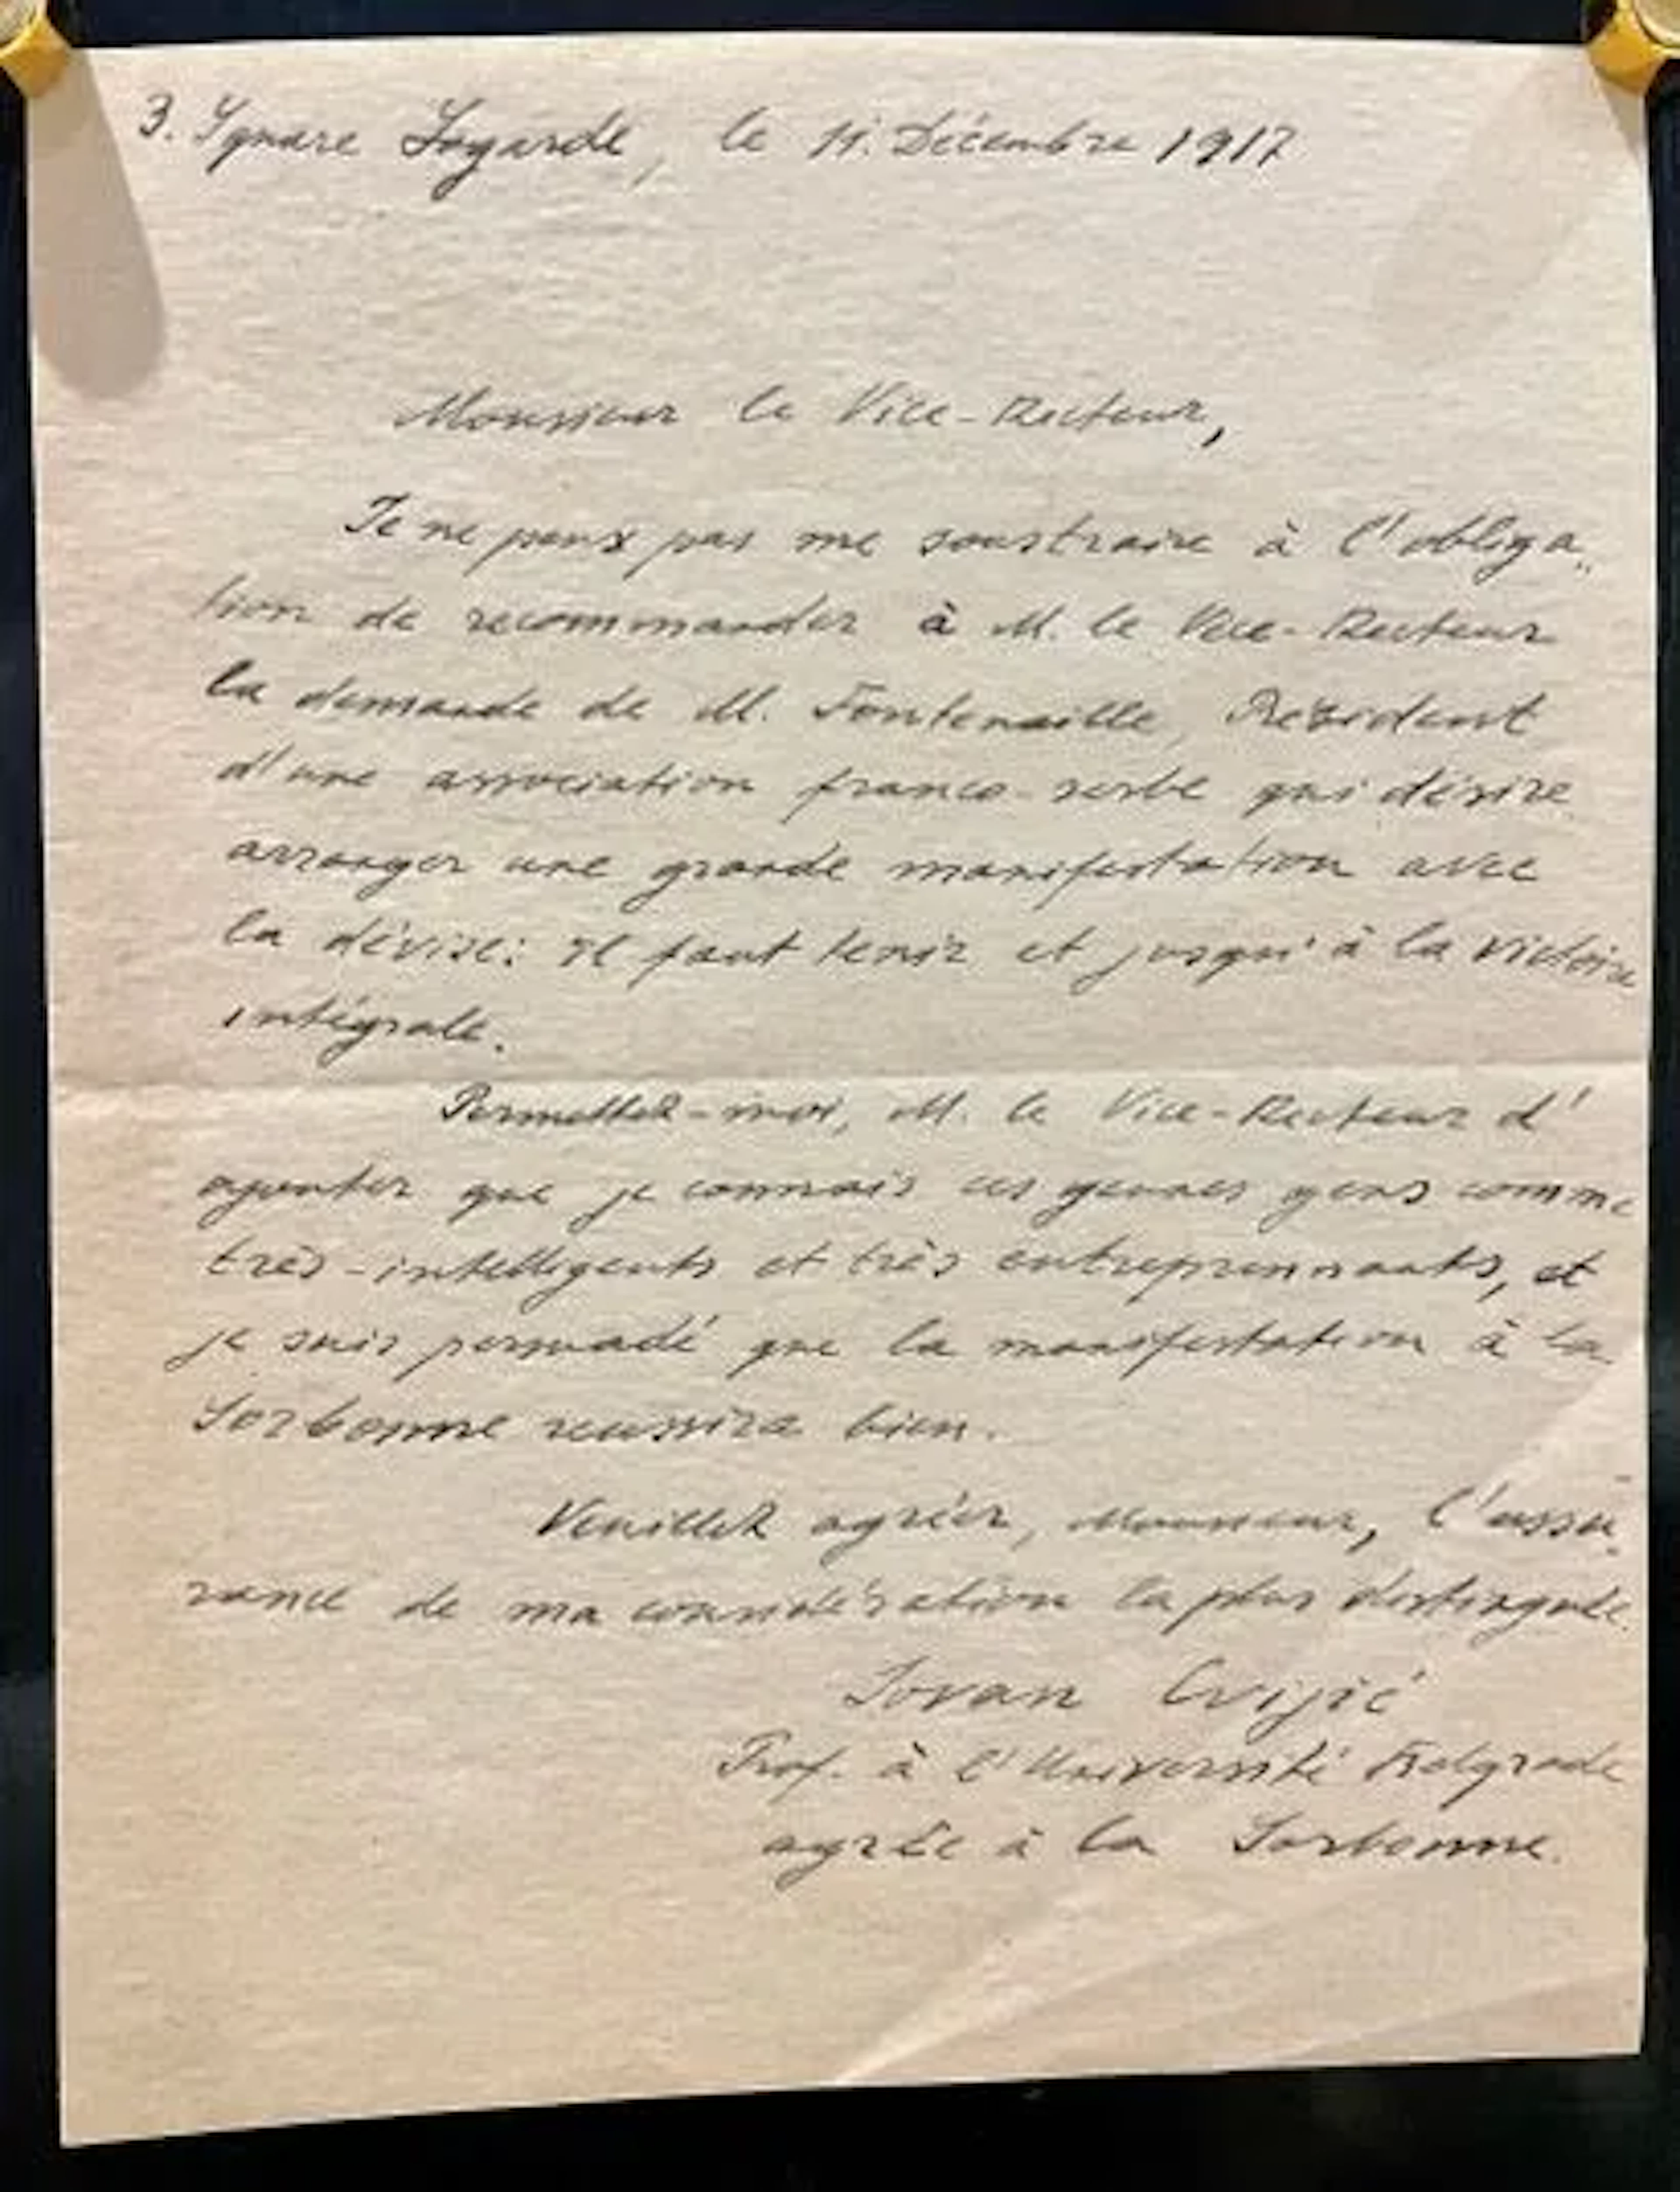 3. Square Lagarde, le 11. Décembre 1917
Monsieur le Vice-Recteur,
Je ne peux pas me soustraire à l'obliga„
tion de recommander à M. le Vice-Recteur
la demande de M. Fontenaille, Président
d'une association franco-serbe qui désire
arranger une grande manifestation avec
la dévise: il faut tenir et jusqu'à la victoire
intégrale.
Permettez-moi, M. le Vice-Recteur d'
ajouter que je connais ces jeunes gens comme
très-intelligents et très entreprennants, et
je suis persuadé que la manifestation à la
Sorbonne reussira bien.
Veuillez agréer, Monsieur, l'assu„
rance de ma considération la plus distinguée.
Jovan Cvijić
Prof. à l'Université Belgrade
agrée à la Sorbonne.